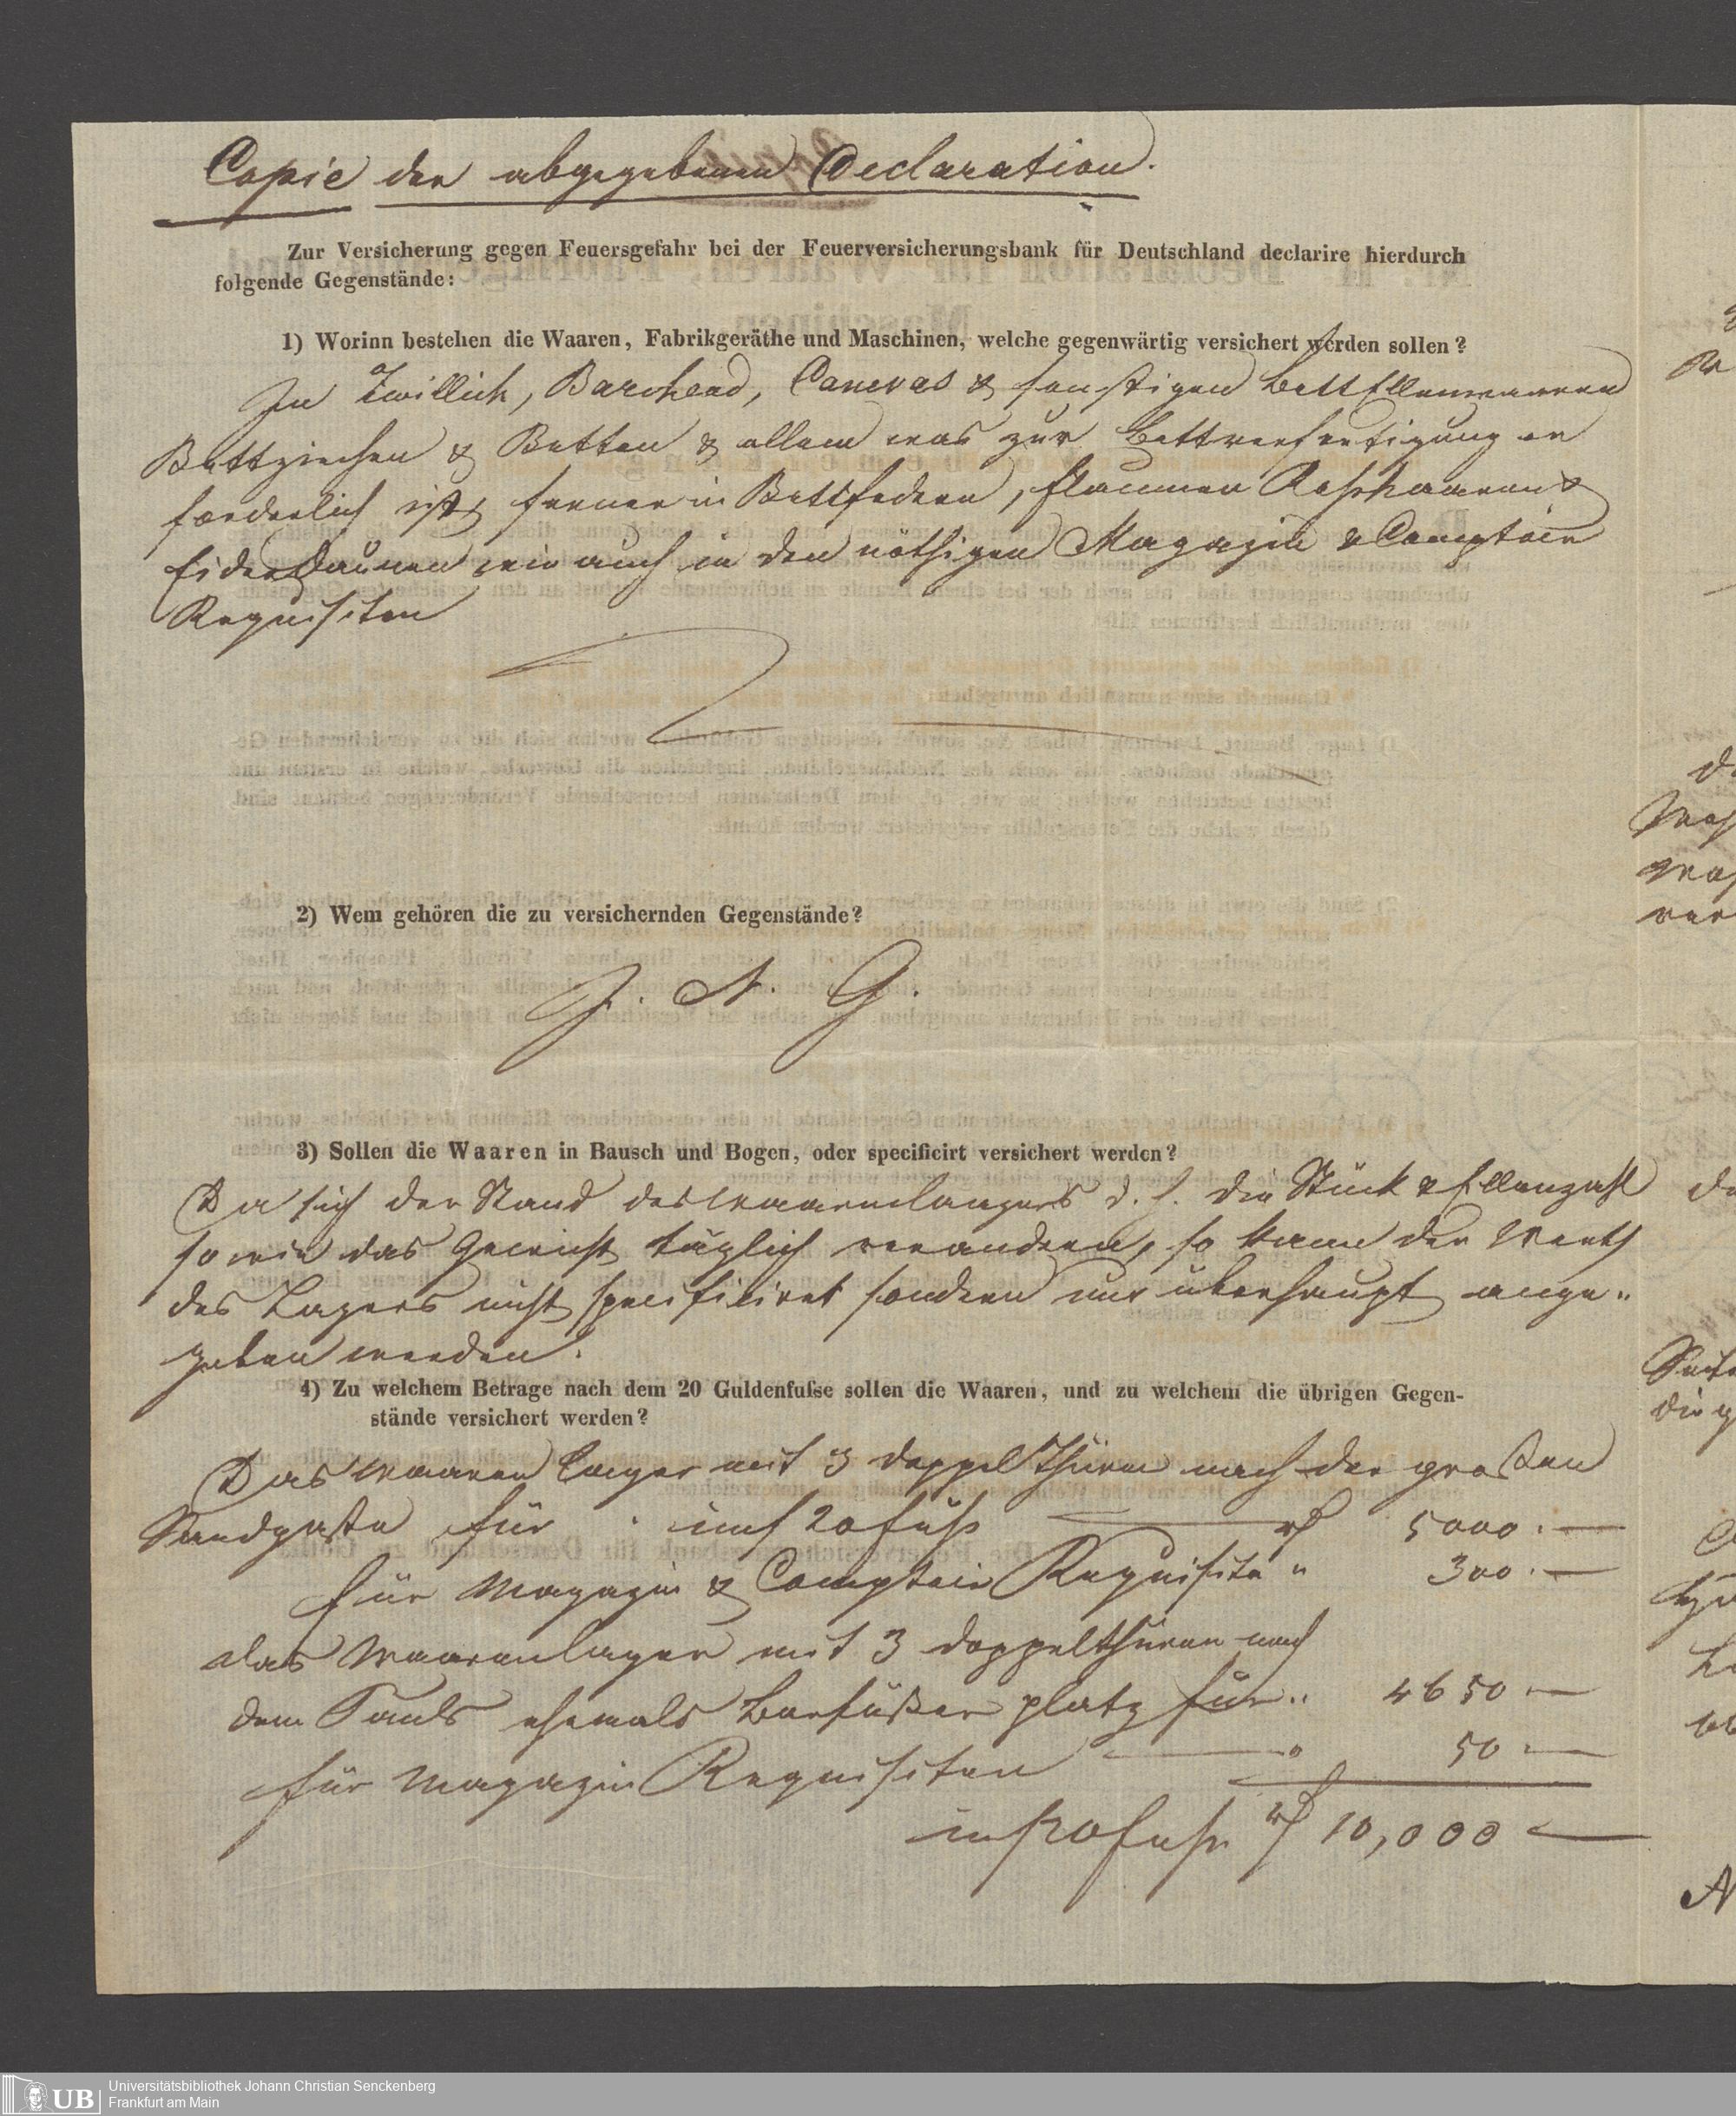 Copie der abgegebenen Declaration.
Zur Versicherung gegen Feuersgefahr bei der Feuerversicherungsbank für Deutschland declarire hierdurch
folgende Gegenstände:
1) Worinn bestehen die Waaren, Fabrikgeräthe und Maschinen, welche gegenwärtig versichert werden sollen?
In Zwillich, Barchend, Canevas & sonstigen Bett Ellenwaaren
Bettziechen & Betten & allem was zur Bettverfertigung er
forderlich ist, ferner in Bettfedern, Flaumen Roßhaaren &
Eider Daunen wie auch in den nöthigen Magazin & Comptoir
Requisiten
2) Wem gehören die zu versichernden Gegenstände?
J. N. G.
3) Sollen die Waaren in Bausch und Bogen, oder specificirt versichert werden?
Da sich der Stand des Waarenlagers d. h. die Stück & Ellenzahl
so wie das Gewicht täglich verandern, so kann der Werth
des Lagers nicht specificiret sondern nur überhaupt ange„
geben werden.
4) Zu welchem Betrage nach dem 20 Guldenfufse sollen die Waaren, und zu welchem die übrigen Gegen-
stände versichert werden?
Das Waaren Lager mit 3 Doppel Thüren nach der großen
Sandgaße für im 20 fuß 5000.—
für Magazin & Comptoir Requisite „ 300.—
das Waarenlager mit 3 Doppelthüren nach
dem Pauls ehemals Barfüßer platz für „ 4650 —
für Magazin Requisiten — „ 50 —
im 20 fuß 10,000 —
UB
Universitätsbibliothek Johann Christian Senckenberg
Frankfurt am Main